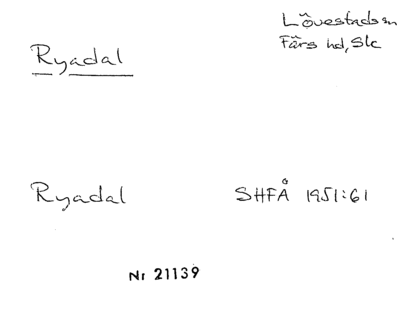 Ryadal
Lövestads sn
Färs hd, Slc
Ryadal
SHFÅ 1951:61
Nr 21139